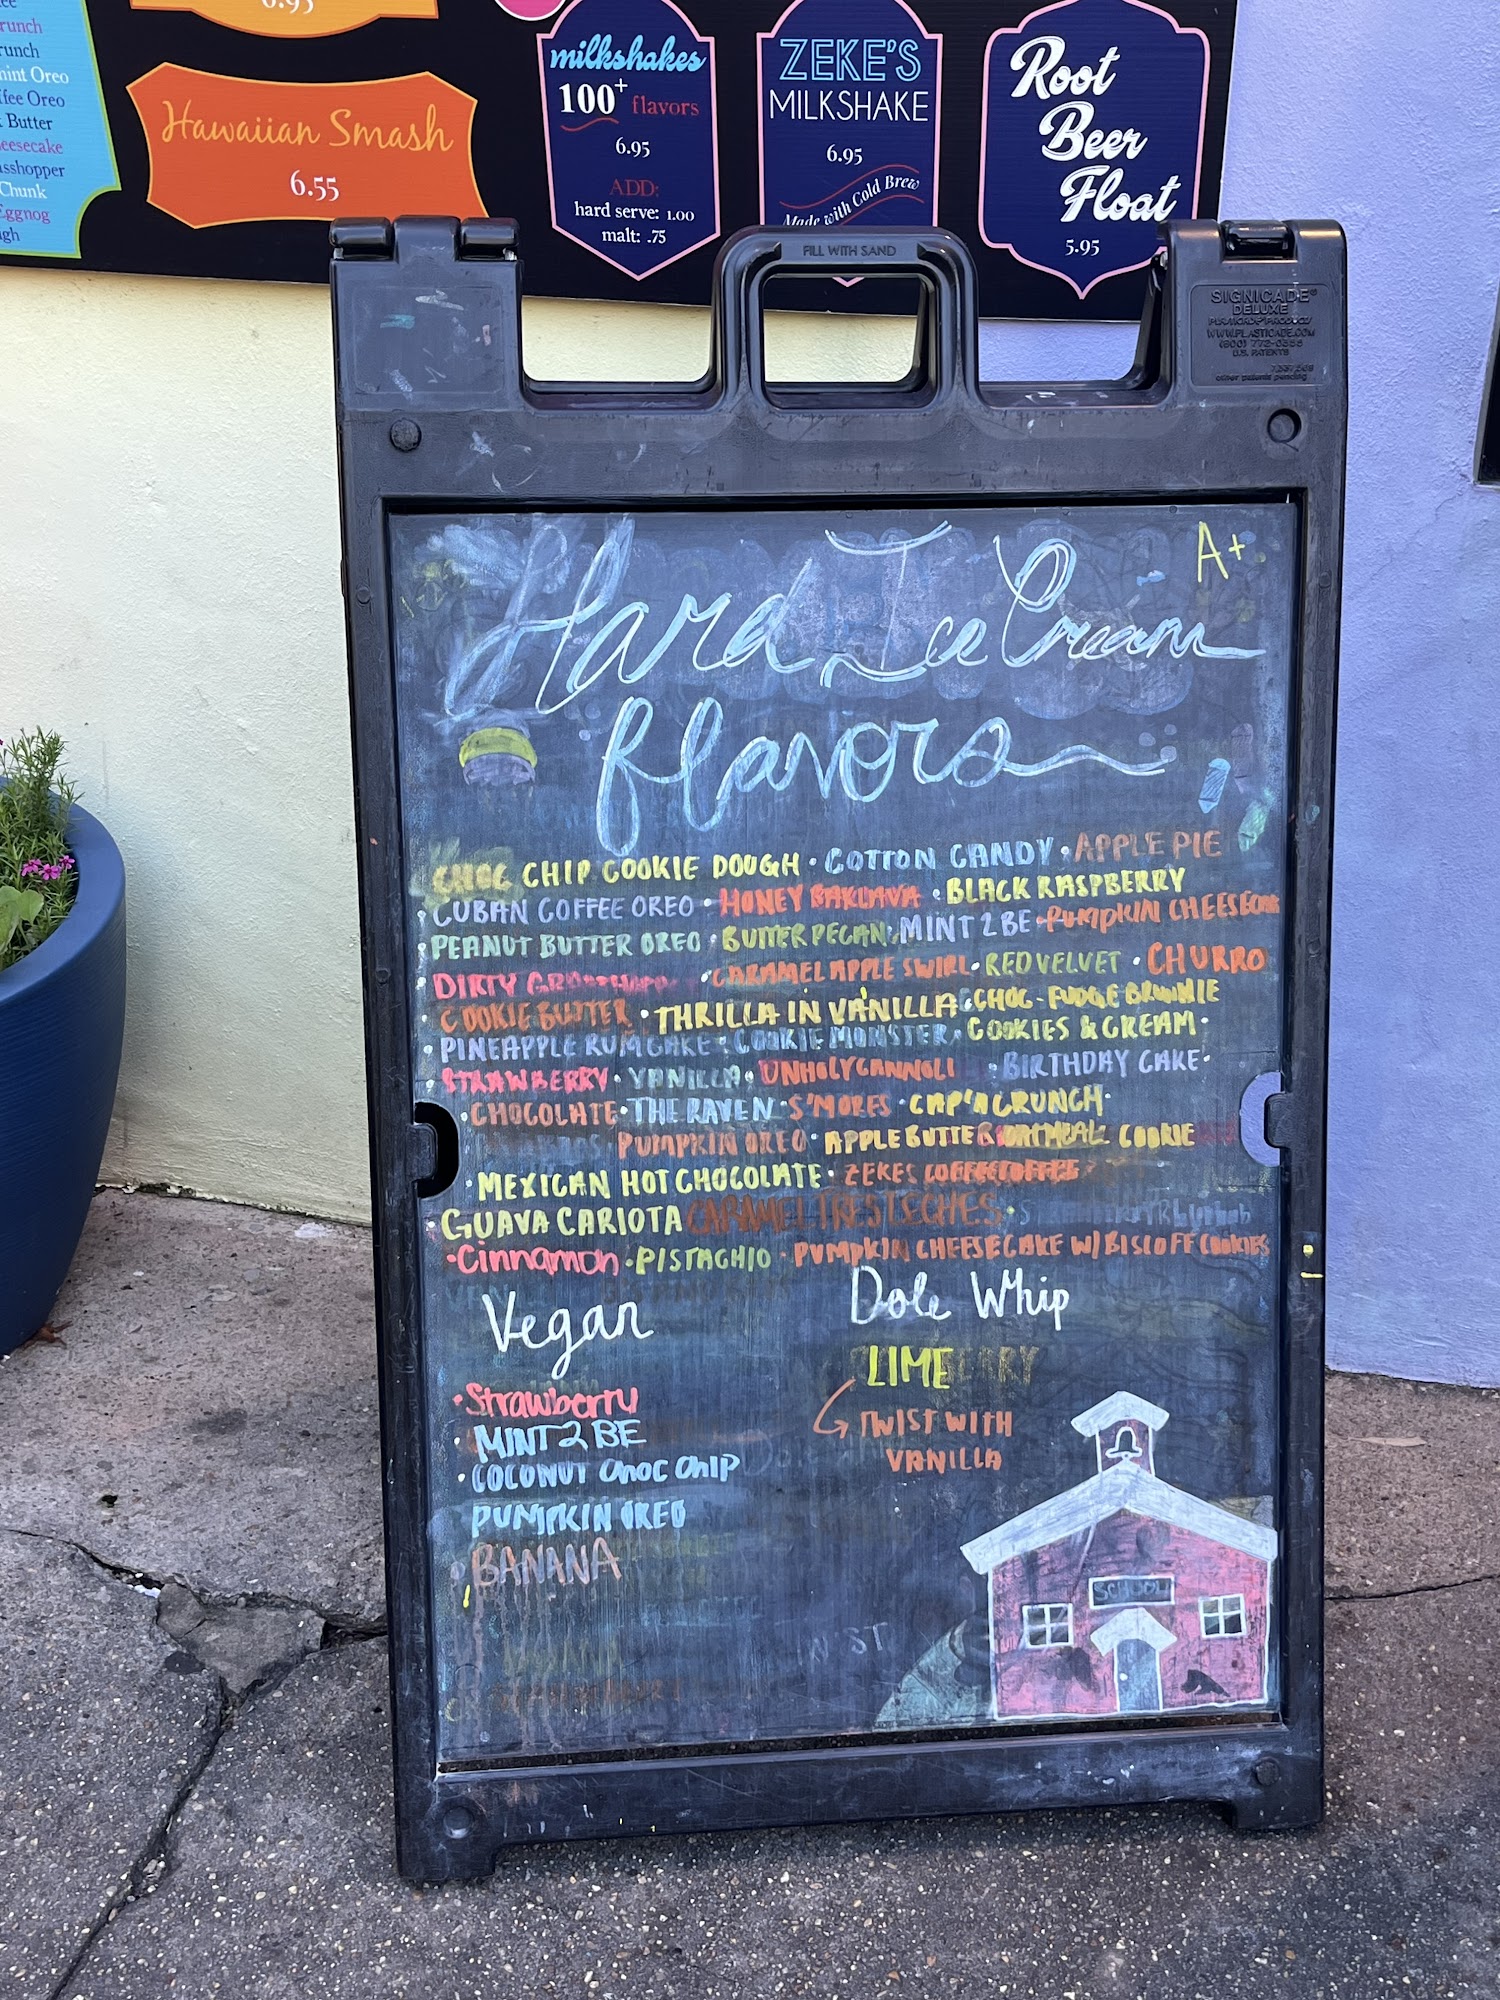 6.95
runch
runch
mint Oreo
ffee Oreo
Butter
eesecake
asshopper
Chunk
Eggnog
ugh
Hawaiian Smash
6.55
milkshakes
100+ flavors
6.95
ADD:
hard serve: 1.00
malt: .75
ZEKE'S
MILKSHAKE
6.95
Made with Cold Brew
Root
Beer
Float
5.95
FILL WITH SAND
SIGNICADE®
DELUXE
WWW.PLASTICADE.COM
U.S. PATENTS
other patents pending
A+
Hard Ice Cream
flavors
CHOC CHIP COOKIE DOUGH · COTTON CANDY · APPLE PIE
· CUBAN COFFEE OREO · HONEY BAKLAVA · BLACK RASPBERRY
· PEANUT BUTTER OREO · BUTTER PECAN · MINT 2 BE · PUMPKIN
DIRTY · CARAMEL APPLE SWIRL · RED VELVET · CHURRO
· COOKIE BUTTER · THRILLA IN VANILLA · CHOC-FUDGE BROWNIE
· PINEAPPLE RUM CAKE · COOKIE MONSTER · COOKIES & CREAM ·
· STRAWBERRY · VANILLA · UNHOLY CANNOLI · BIRTHDAY CAKE ·
· CHOCOLATE · THE RAVEN · S'MORES · CAP'N CRUNCH ·
PUMPKIN OREO · APPLE BUTTER OATMEAL COOKIE
· MEXICAN HOT CHOCOLATE · ZEKES COFFEE
· GUAVA CARIOTA CARAMEL TRES LECHES ·
· Cinnamon · PISTACHIO · PUMPKIN CHEESECAKE W/ BISCOFF COOKIES
Vegan
· Strawberry
· MINT 2 BE
· COCONUT CHOC CHIP
PUMPKIN OREO
· BANANA
Dole Whip
LIME
TWIST WITH
VANILLA
SCHOOL